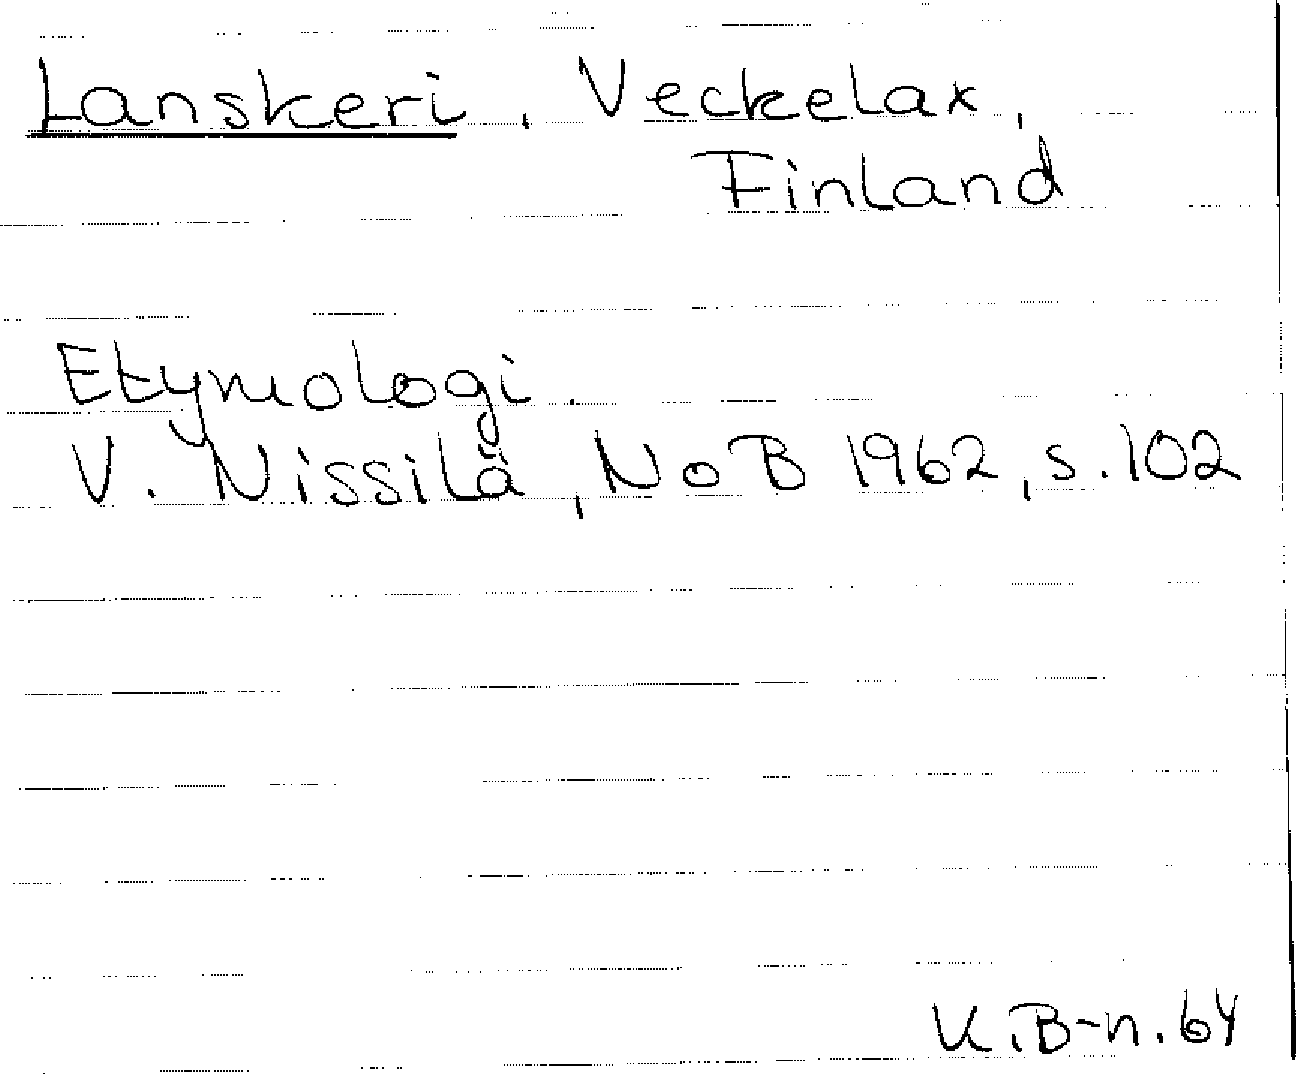 Lanskeri, Veckelax,
Finland
Etymologi.
V. Nissilä, NoB 1962, s. 102
K.B-n. 64